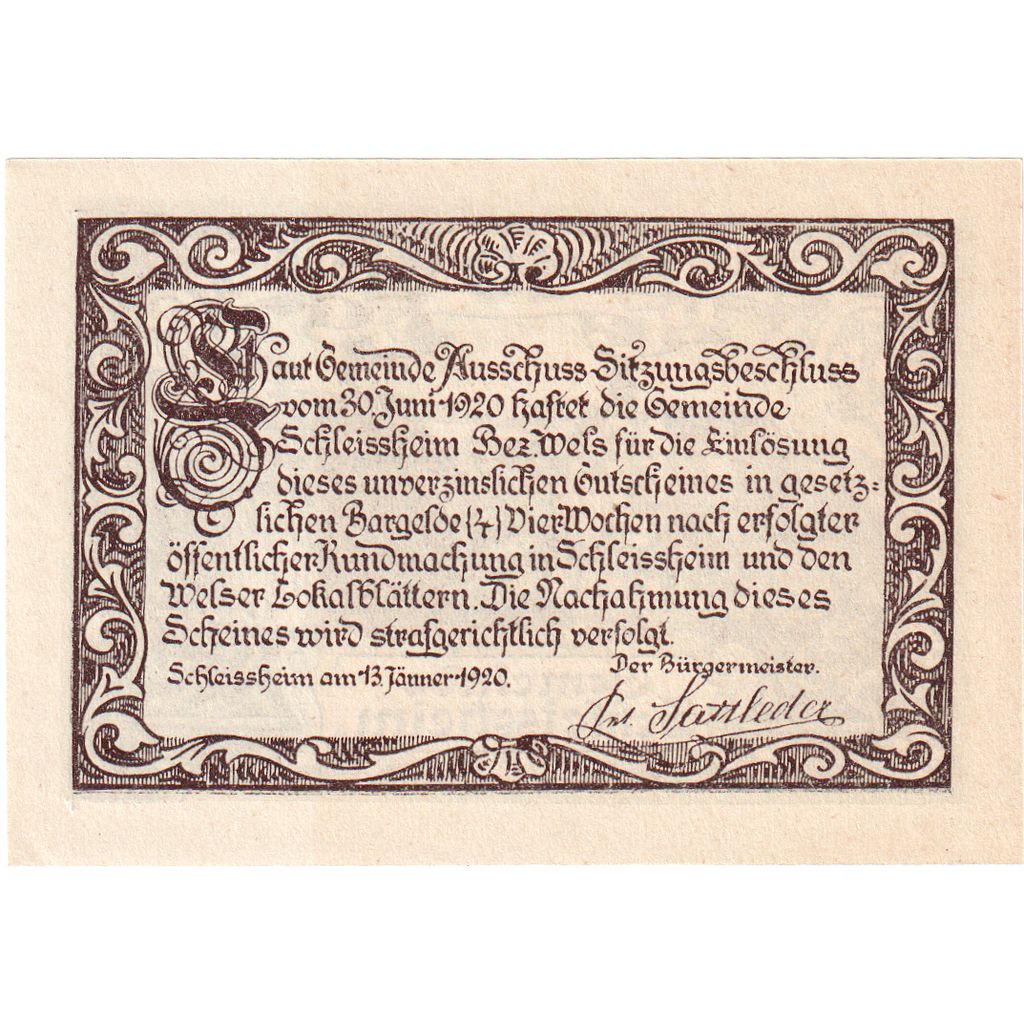 Laut Gemeinde Ausschuss-Sitzungsbeschluss
vom 30. Juni 1920 haftet die Gemeinde
Schleissheim Bez. Wels für die Einlösung
dieses unverzinslichen Gutscheines in gesetz-
lichen Bargelde (4) Vier Wochen nach erfolgter
öffentlicher Kundmachung in Schleissheim und den
Welser Lokalblättern. Die Nachahmung dieses
Scheines wird strafgerichtlich verfolgt.
Schleissheim am 13. Jänner 1920.
Der Bürgermeister.